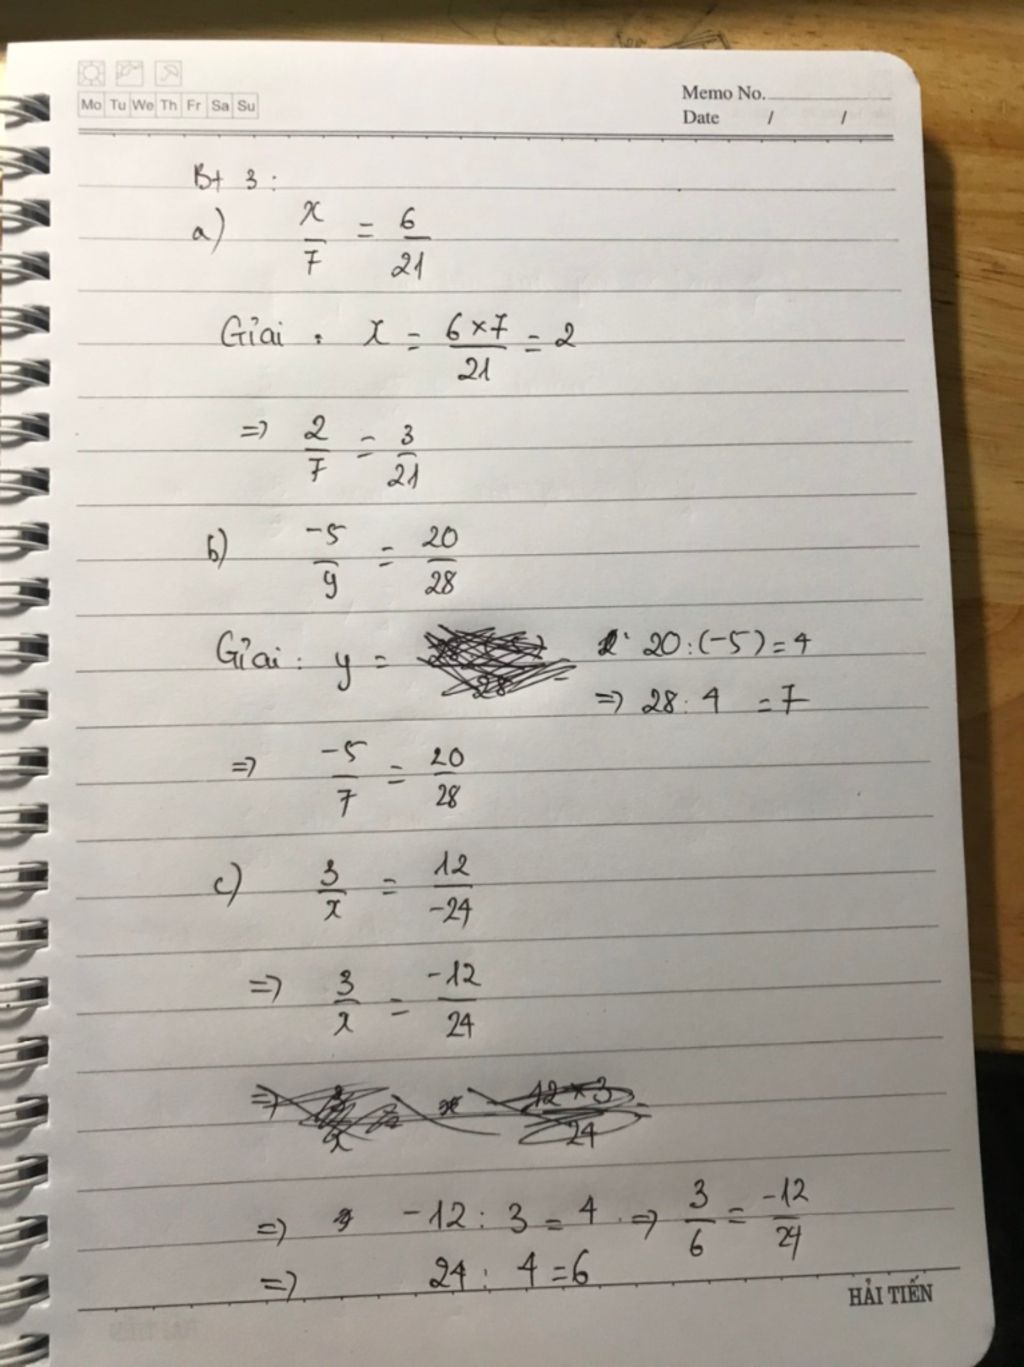 Mo Tu We Th Fr Sa Su
Memo No.
Date / /
Bt 3:
a) x/7 = 6/21
Giải: x = 6×7/21 = 2
=> 2/7 = 3/21
b) -5/y = 20/28
Giải: y = 20:(-5)=4
=> 28:4 =7
=> -5/7 = 20/28
c) 3/x = 12/-24
=> 3/x = -12/24
=> -12:3=4 => 3/6 = -12/24
=> 24:4=6
HẢI TIẾN